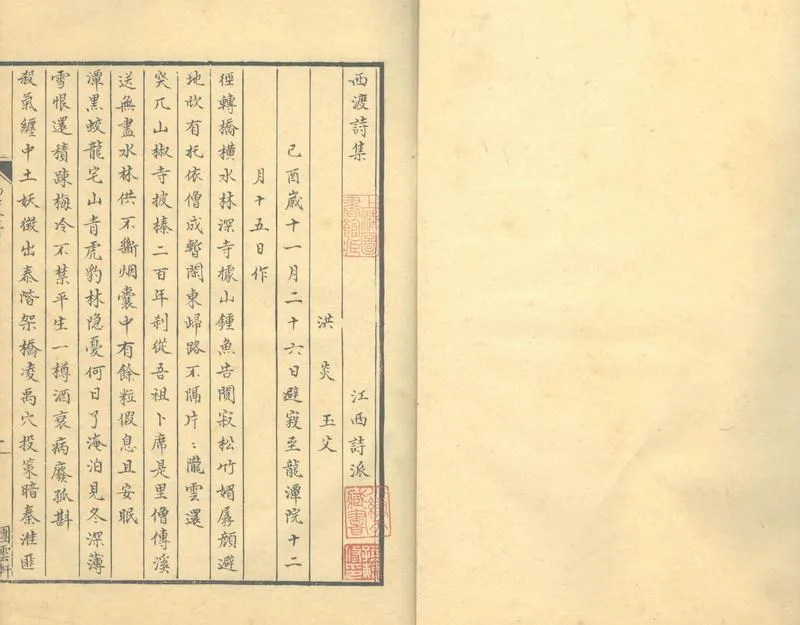 西渡詩集 江西詩派
洪炎玉父
己酉嵗十一月二十六日避寇至龍潭院十二
月十五日作
徑轉橋橫水林深寺據山鍾魚告閒寂松竹媚孱顔避
地欣有托依僧成暫閑東歸路不隔片〻隴雲還
突兀山椒寺披榛二百年刹從吾祖卜席是里僧傳溪
送無盡水林供不斷烟囊中有餘粒假息且安眠
潭黑蛟龍宅山青虎豹林隐憂何日了淹泊見冬深薄
雪恨還積疎梅冷不禁平生一樽酒衰病廢孤斟
殺氣纏中土妖徵出泰階架橋凌禹穴投策暗秦淮匪
團雲軒